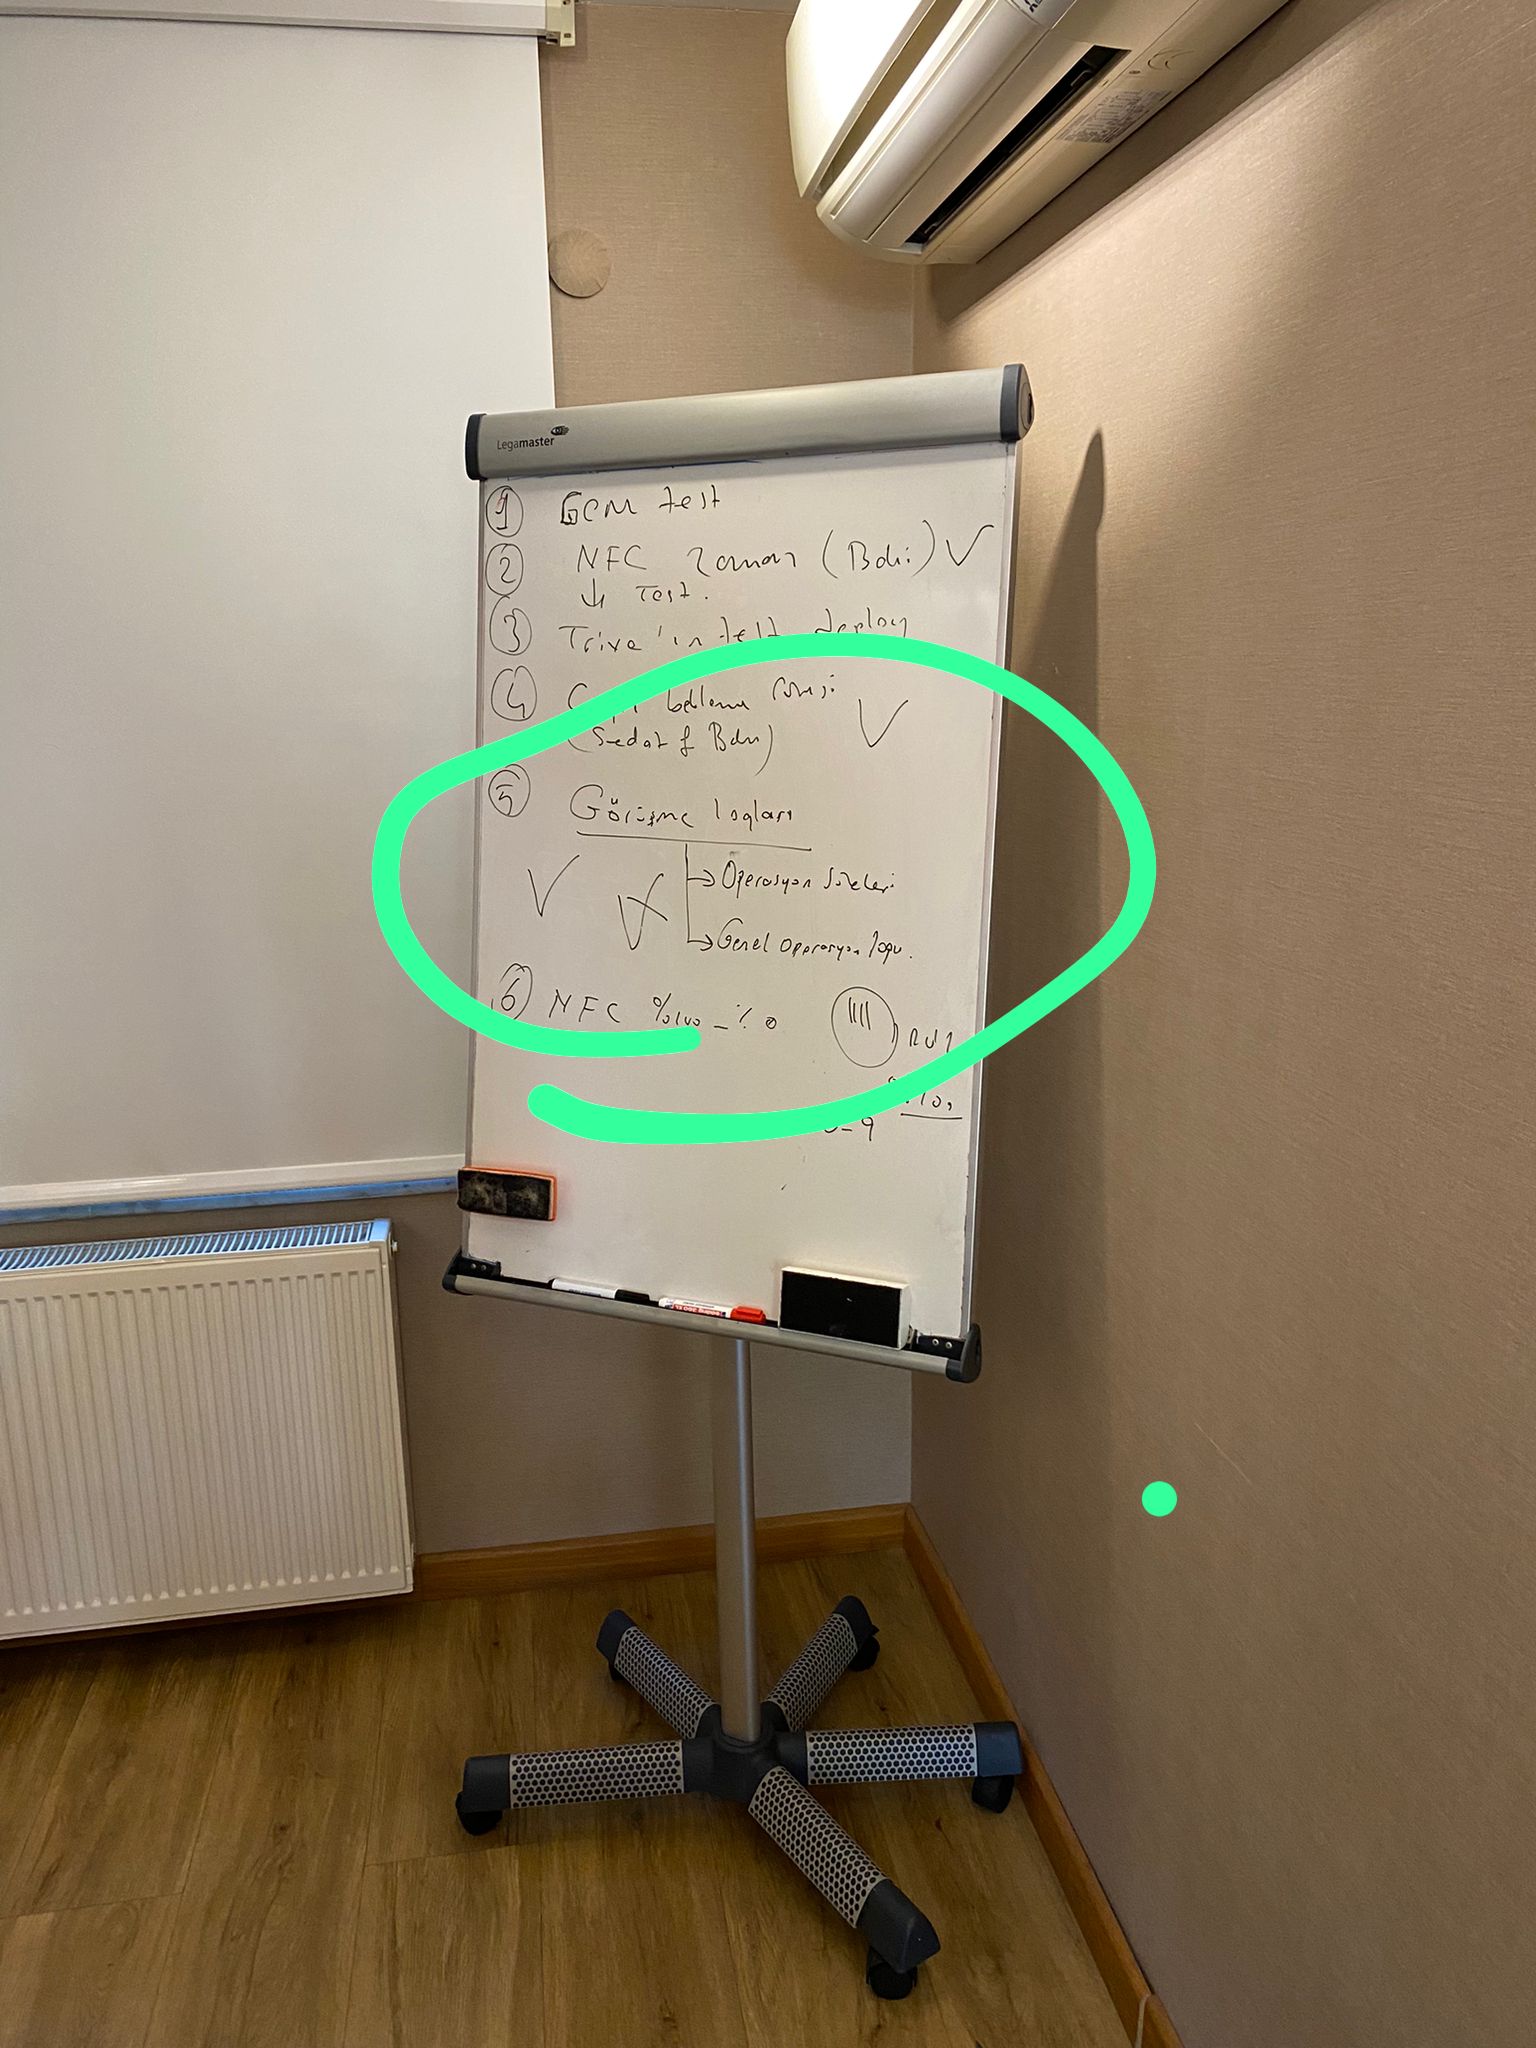 Legamaster
1 GCM test
2 NFC zaman (Bdri) ✓
↓ Test.
3 Trive'in test deploy
4 bekleme ✓
(Sedat & Bdri)
5 Görüşme logları
→ Operasyon süreleri
→ Genel operasyon logu.
6 NFC %100 - % 0